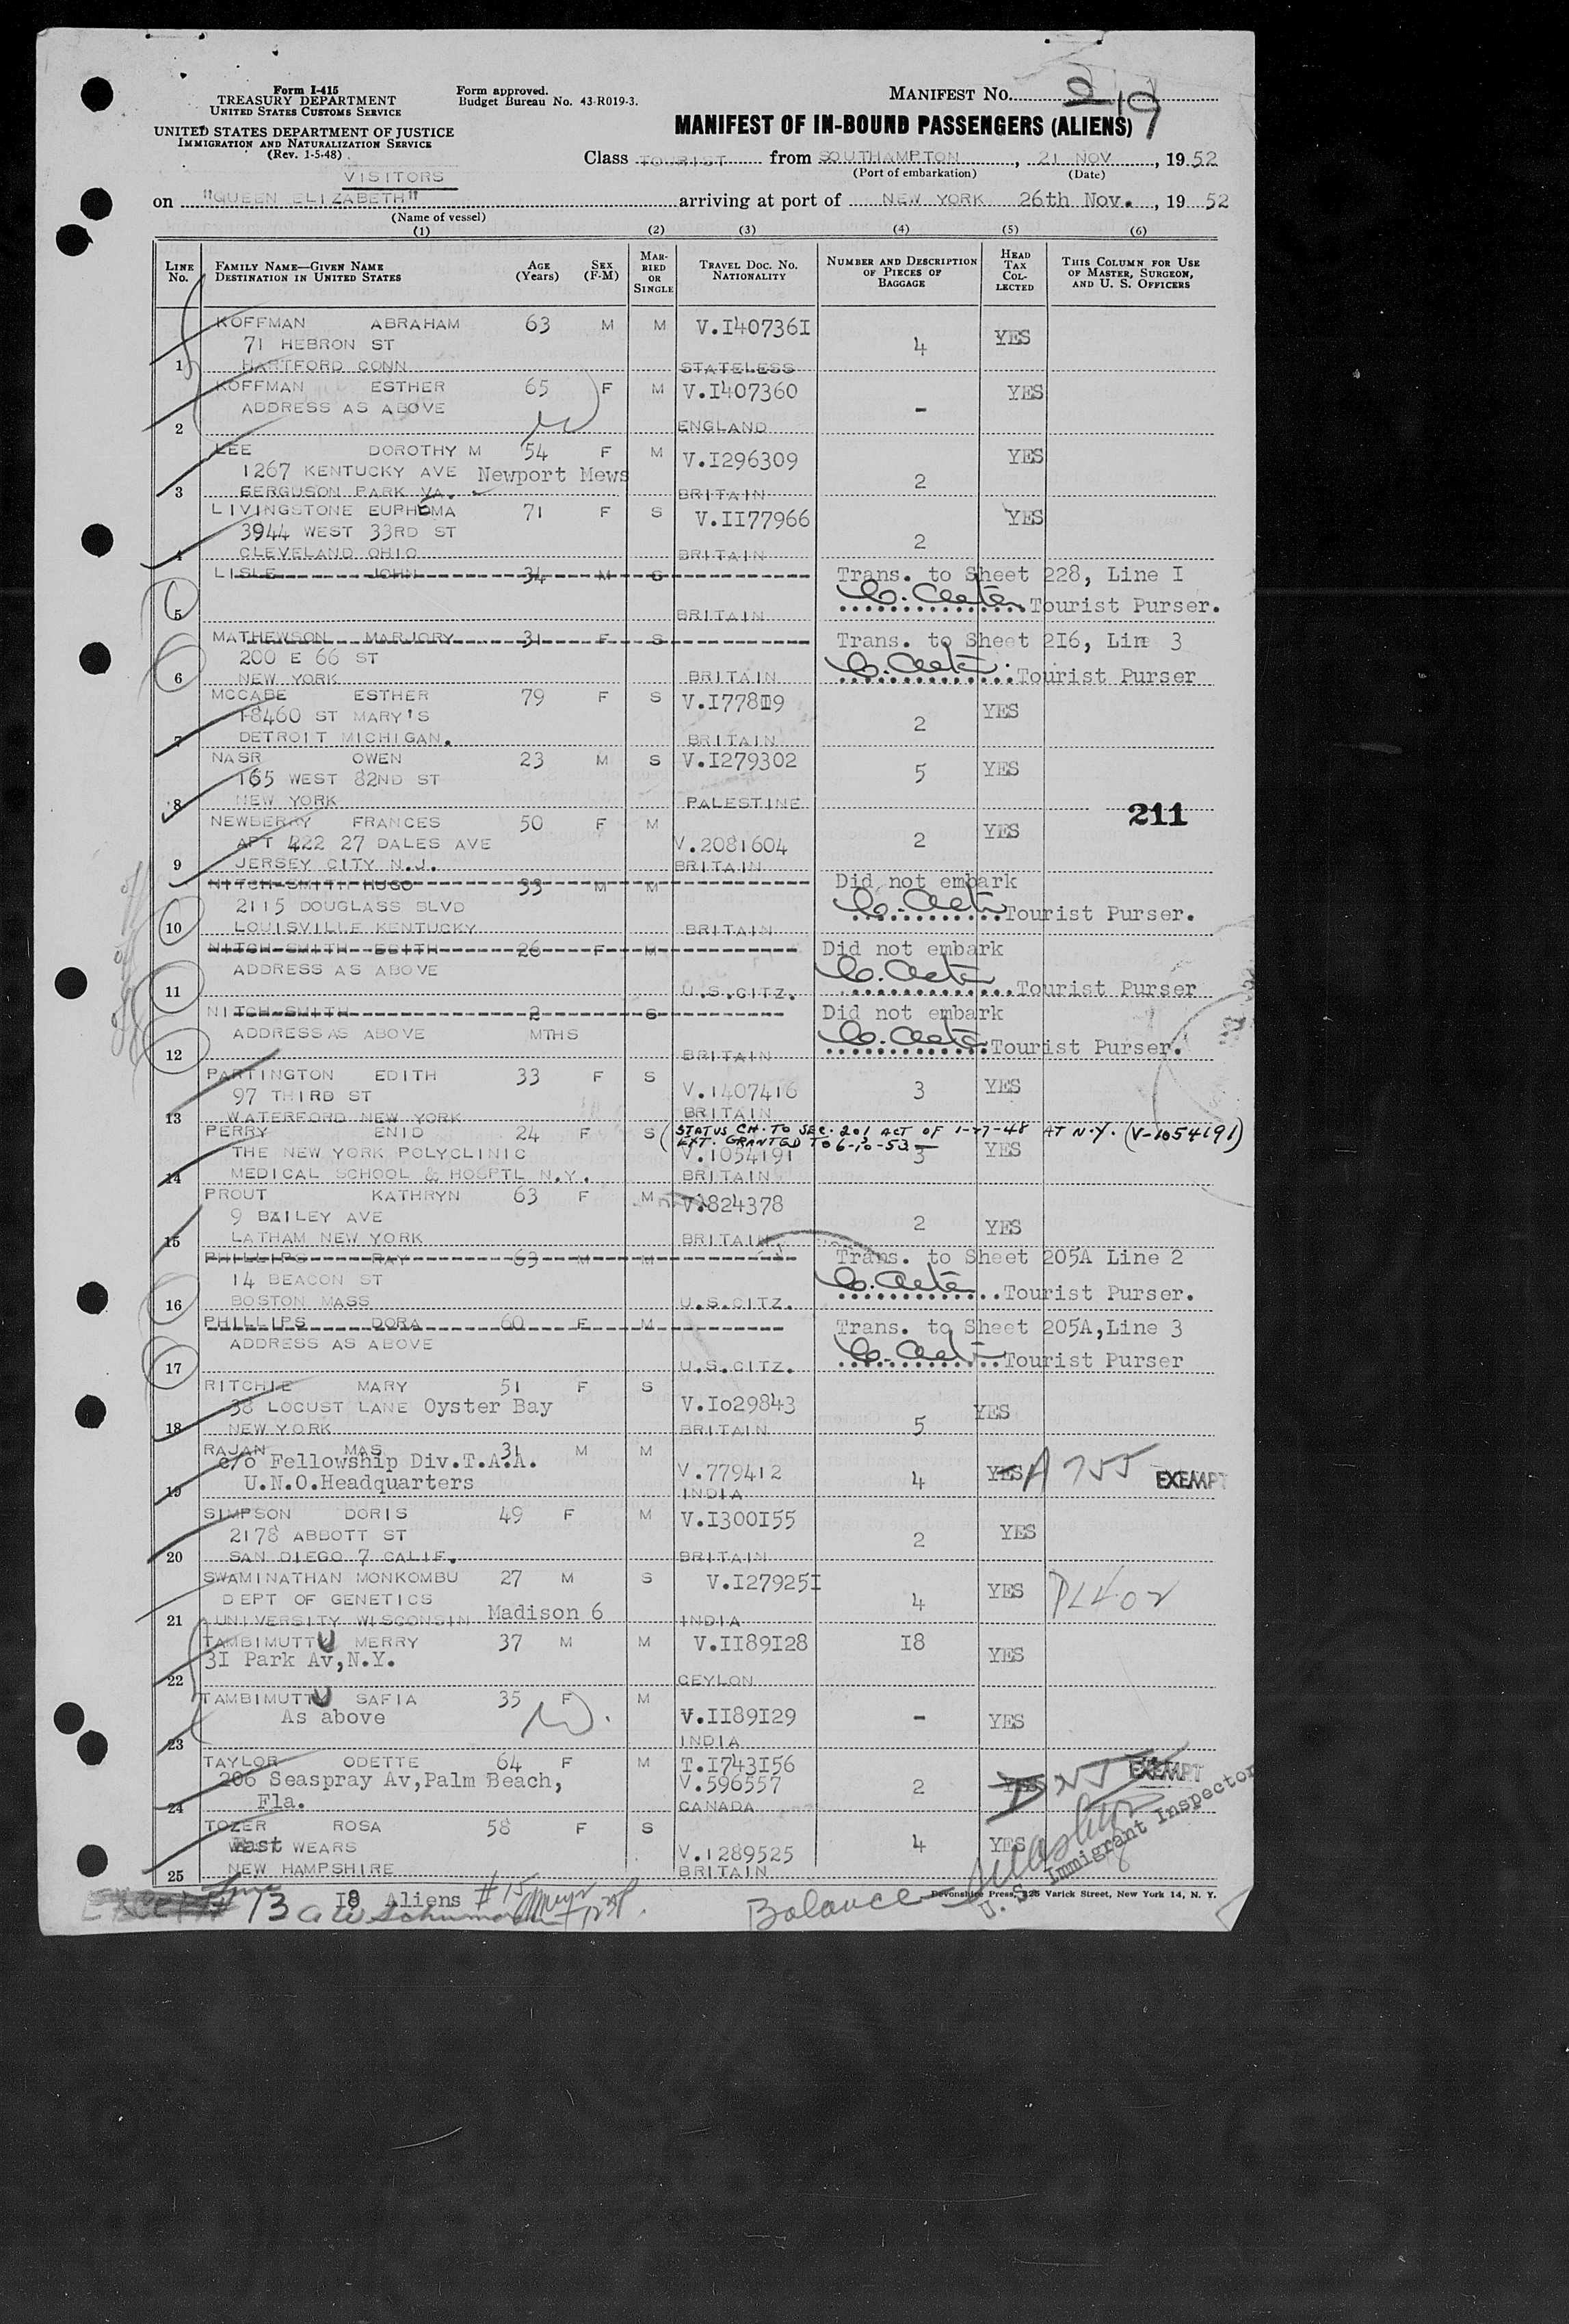 Form I-415
TREASURY DEPARTMENT
UNITED STATES CUSTOMS SERVICE
UNITED STATES DEPARTMENT OF JUSTICE
IMMIGRATION AND NATURALIZATION SERVICE
(Rev. 1-5-48)
Form approved.
Budget Bureau No. 43-R019-3.
MANIFEST NO. 219
MANIFEST OF IN-BOUND PASSENGERS (ALIENS)
Class TOURIST from SOUTHAMPTON, 21 NOV, 1952
(Port of embarkation) (Date)
VISITORS
on "QUEEN ELIZABETH" arriving at port of NEW YORK 26th Nov., 1952
(Name of vessel)
(1) (2) (3) (4) (5) (6)
LINE NO. FAMILY NAME—GIVEN NAME DESTINATION IN UNITED STATES AGE (Years) SEX (F-M) MARRIED OR SINGLE TRAVEL DOC. NO. NATIONALITY NUMBER AND DESCRIPTION OF PIECES OF BAGGAGE HEAD TAX COLLECTED THIS COLUMN FOR USE OF MASTER, SURGEON, AND U. S. OFFICERS
KOFFMAN ABRAHAM 63 M M V.I40736I
71 HEBRON ST 4 YES
1 HARTFORD CONN STATELESS
KOFFMAN ESTHER 65 F M V.I407360 YES
ADDRESS AS ABOVE -
2 ENGLAND
LEE DOROTHY M 54 F M V.I296309 YES
1267 KENTUCKY AVE Newport Mews 2
3 FERGUSON PARK VA. BRITAIN
LIVINGSTONE EUPHEMA 71 F S V.II77966 YES
3944 WEST 33RD ST 2
4 CLEVELAND OHIO BRITAIN
LISLE JOHN 34 M S Trans. to Sheet 228, Line I
5 BRITAIN Tourist Purser.
MATHEWSON MARJORY 31 F S Trans. to Sheet 2I6, Line 3
200 E 66 ST
6 NEW YORK BRITAIN Tourist Purser
MCCABE ESTHER 79 F S V.I778I9 YES
18460 ST MARY'S 2
7 DETROIT MICHIGAN. BRITAIN
NASR OWEN 23 M S V.I279302
165 WEST 82ND ST 5 YES
8 NEW YORK PALESTINE
211
NEWBERRY FRANCES 50 F M YES
APT 422 27 DALES AVE V.2081604 2
9 JERSEY CITY N.J. BRITAIN
NITCH-SMITH HUGO 33 M M Did not embark
2115 DOUGLASS BLVD Tourist Purser.
10 LOUISVILLE KENTUCKY BRITAIN
NITCH-SMITH EDITH 26 F M Did not embark
ADDRESS AS ABOVE
11 U.S.CITZ. Tourist Purser
NITCH-SMITH 2 S Did not embark
ADDRESS AS ABOVE MTHS
12 BRITAIN Tourist Purser.
PARTINGTON EDITH 33 F S
97 THIRD ST V.1407416 3 YES
13 WATERFORD NEW YORK BRITAIN
PERRY ENID 24 F S (STATUS CH. TO SEC. 201 ACT OF 1-27-48 AT N.Y. (V-1054191)
EXT. GRANTED TO 6-10-53
THE NEW YORK POLYCLINIC V.1054191 3 YES
14 MEDICAL SCHOOL & HOSPTL N.Y. BRITAIN
PROUT KATHRYN 63 F M V.824378
9 BAILEY AVE 2 YES
15 LATHAM NEW YORK BRITAIN
PHILLIPS RAY 63 M M Trans. to Sheet 205A Line 2
14 BEACON ST
16 BOSTON MASS U.S.CITZ. Tourist Purser.
PHILLIPS DORA 60 F M Trans. to Sheet 205A,Line 3
ADDRESS AS ABOVE
17 U.S.CITZ. Tourist Purser
RITCHIE MARY 51 F S
38 LOCUST LANE Oyster Bay V.Io29843 YES
18 NEW YORK BRITAIN 5
RAJAN MAS 31 M M
c/o Fellowship Div.T.A.A.
U.N.O.Headquarters V.779412 4 YES A 755 EXEMPT
19 INDIA
SIMPSON DORIS 49 F M V.I300I55
2178 ABBOTT ST 2 YES
20 SAN DIEGO 7 CALIF. BRITAIN
SWAMINATHAN MONKOMBU 27 M S V.I27925I
DEPT OF GENETICS 4 YES PL402
21 UNIVERSITY WISCONSIN Madison 6 INDIA
TAMBIMUTTU MERRY 37 M M V.II89I28 I8
3I Park Av,N.Y. YES
22 CEYLON
TAMBIMUTTU SAFIA 35 F M
As above V.II89I29 - YES
23 INDIA
TAYLOR ODETTE 64 F M T.I743I56 EXEMPT
206 Seaspray Av,Palm Beach, V.596557 2 YES
24 Fla. CANADA
TOZER ROSA 58 F S
East WEARS V.1289525 4 YES
25 NEW HAMPSHIRE BRITAIN
U. S. Immigrant Inspector
Devonshire Press, 225 Varick Street, New York 14, N. Y.
13 I8 Aliens #15
Balance